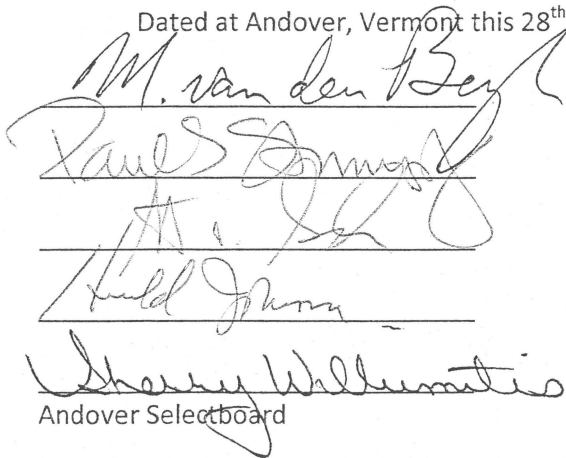 Dated at Andover, Vermont this 28th
M. van den Bergh
Paul
Harold Johnson
Sherry Willumitis
Andover Selectboard